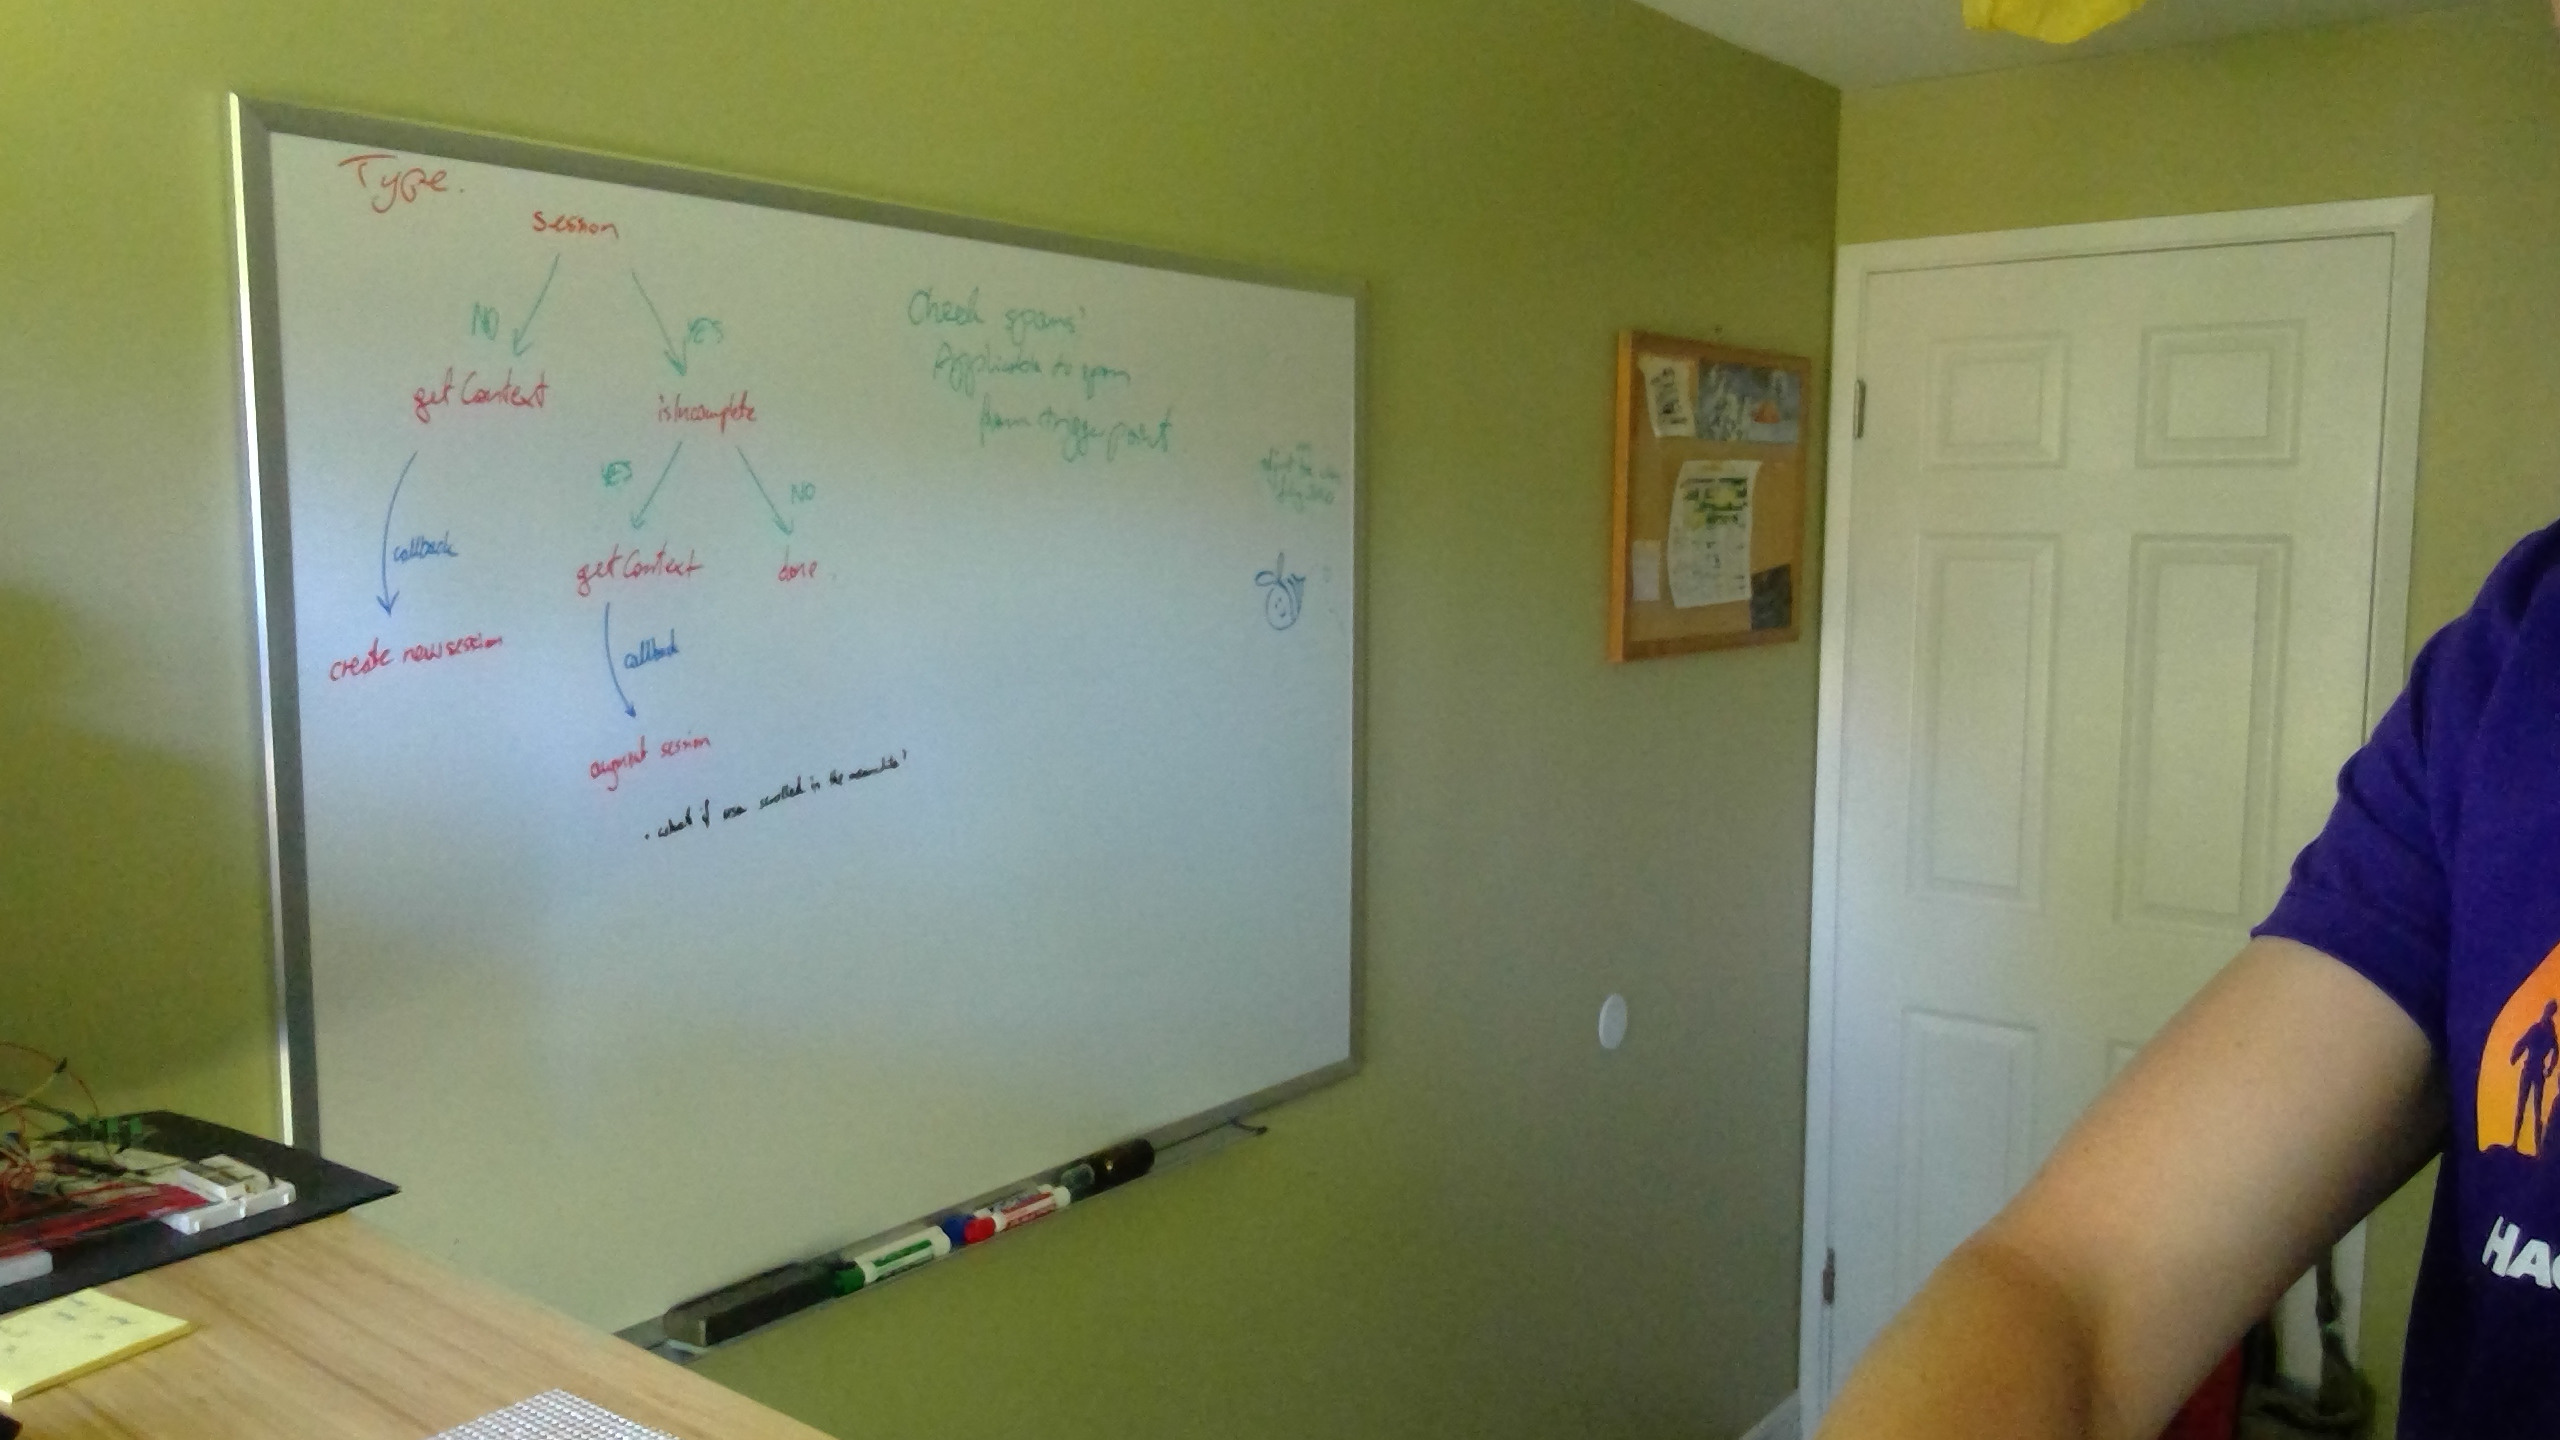 Type.
session
NO
YES
getContext
isIncomplete
YES
NO
callback
getContext
done.
create new session
callback
augment session
• what if user scrolled in the meanwhile?
Check spans:
Applicable to span
from trigger point
HAC